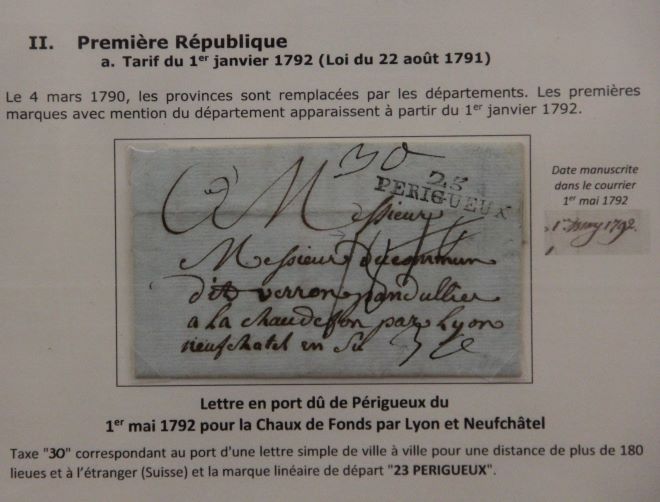 II. Première République
a. Tarif du 1er janvier 1792 (Loi du 22 août 1791)
Le 4 mars 1790, les provinces sont remplacées par les départements. Les premières
marques avec mention du département apparaissent à partir du 1er janvier 1792.
30
23
PERIGUEUX
A Messieur
Messieur Ducommun
dit verron
a la chaudefon par Lyon
neufchatel en
Date manuscrite
dans le courrier
1er mai 1792
1792.
Lettre en port dû de Périgueux du
1er mai 1792 pour la Chaux de Fonds par Lyon et Neufchâtel
Taxe "30" correspondant au port d'une lettre simple de ville à ville pour une distance de plus de 180
lieues et à l'étranger (Suisse) et la marque linéaire de départ "23 PERIGUEUX".